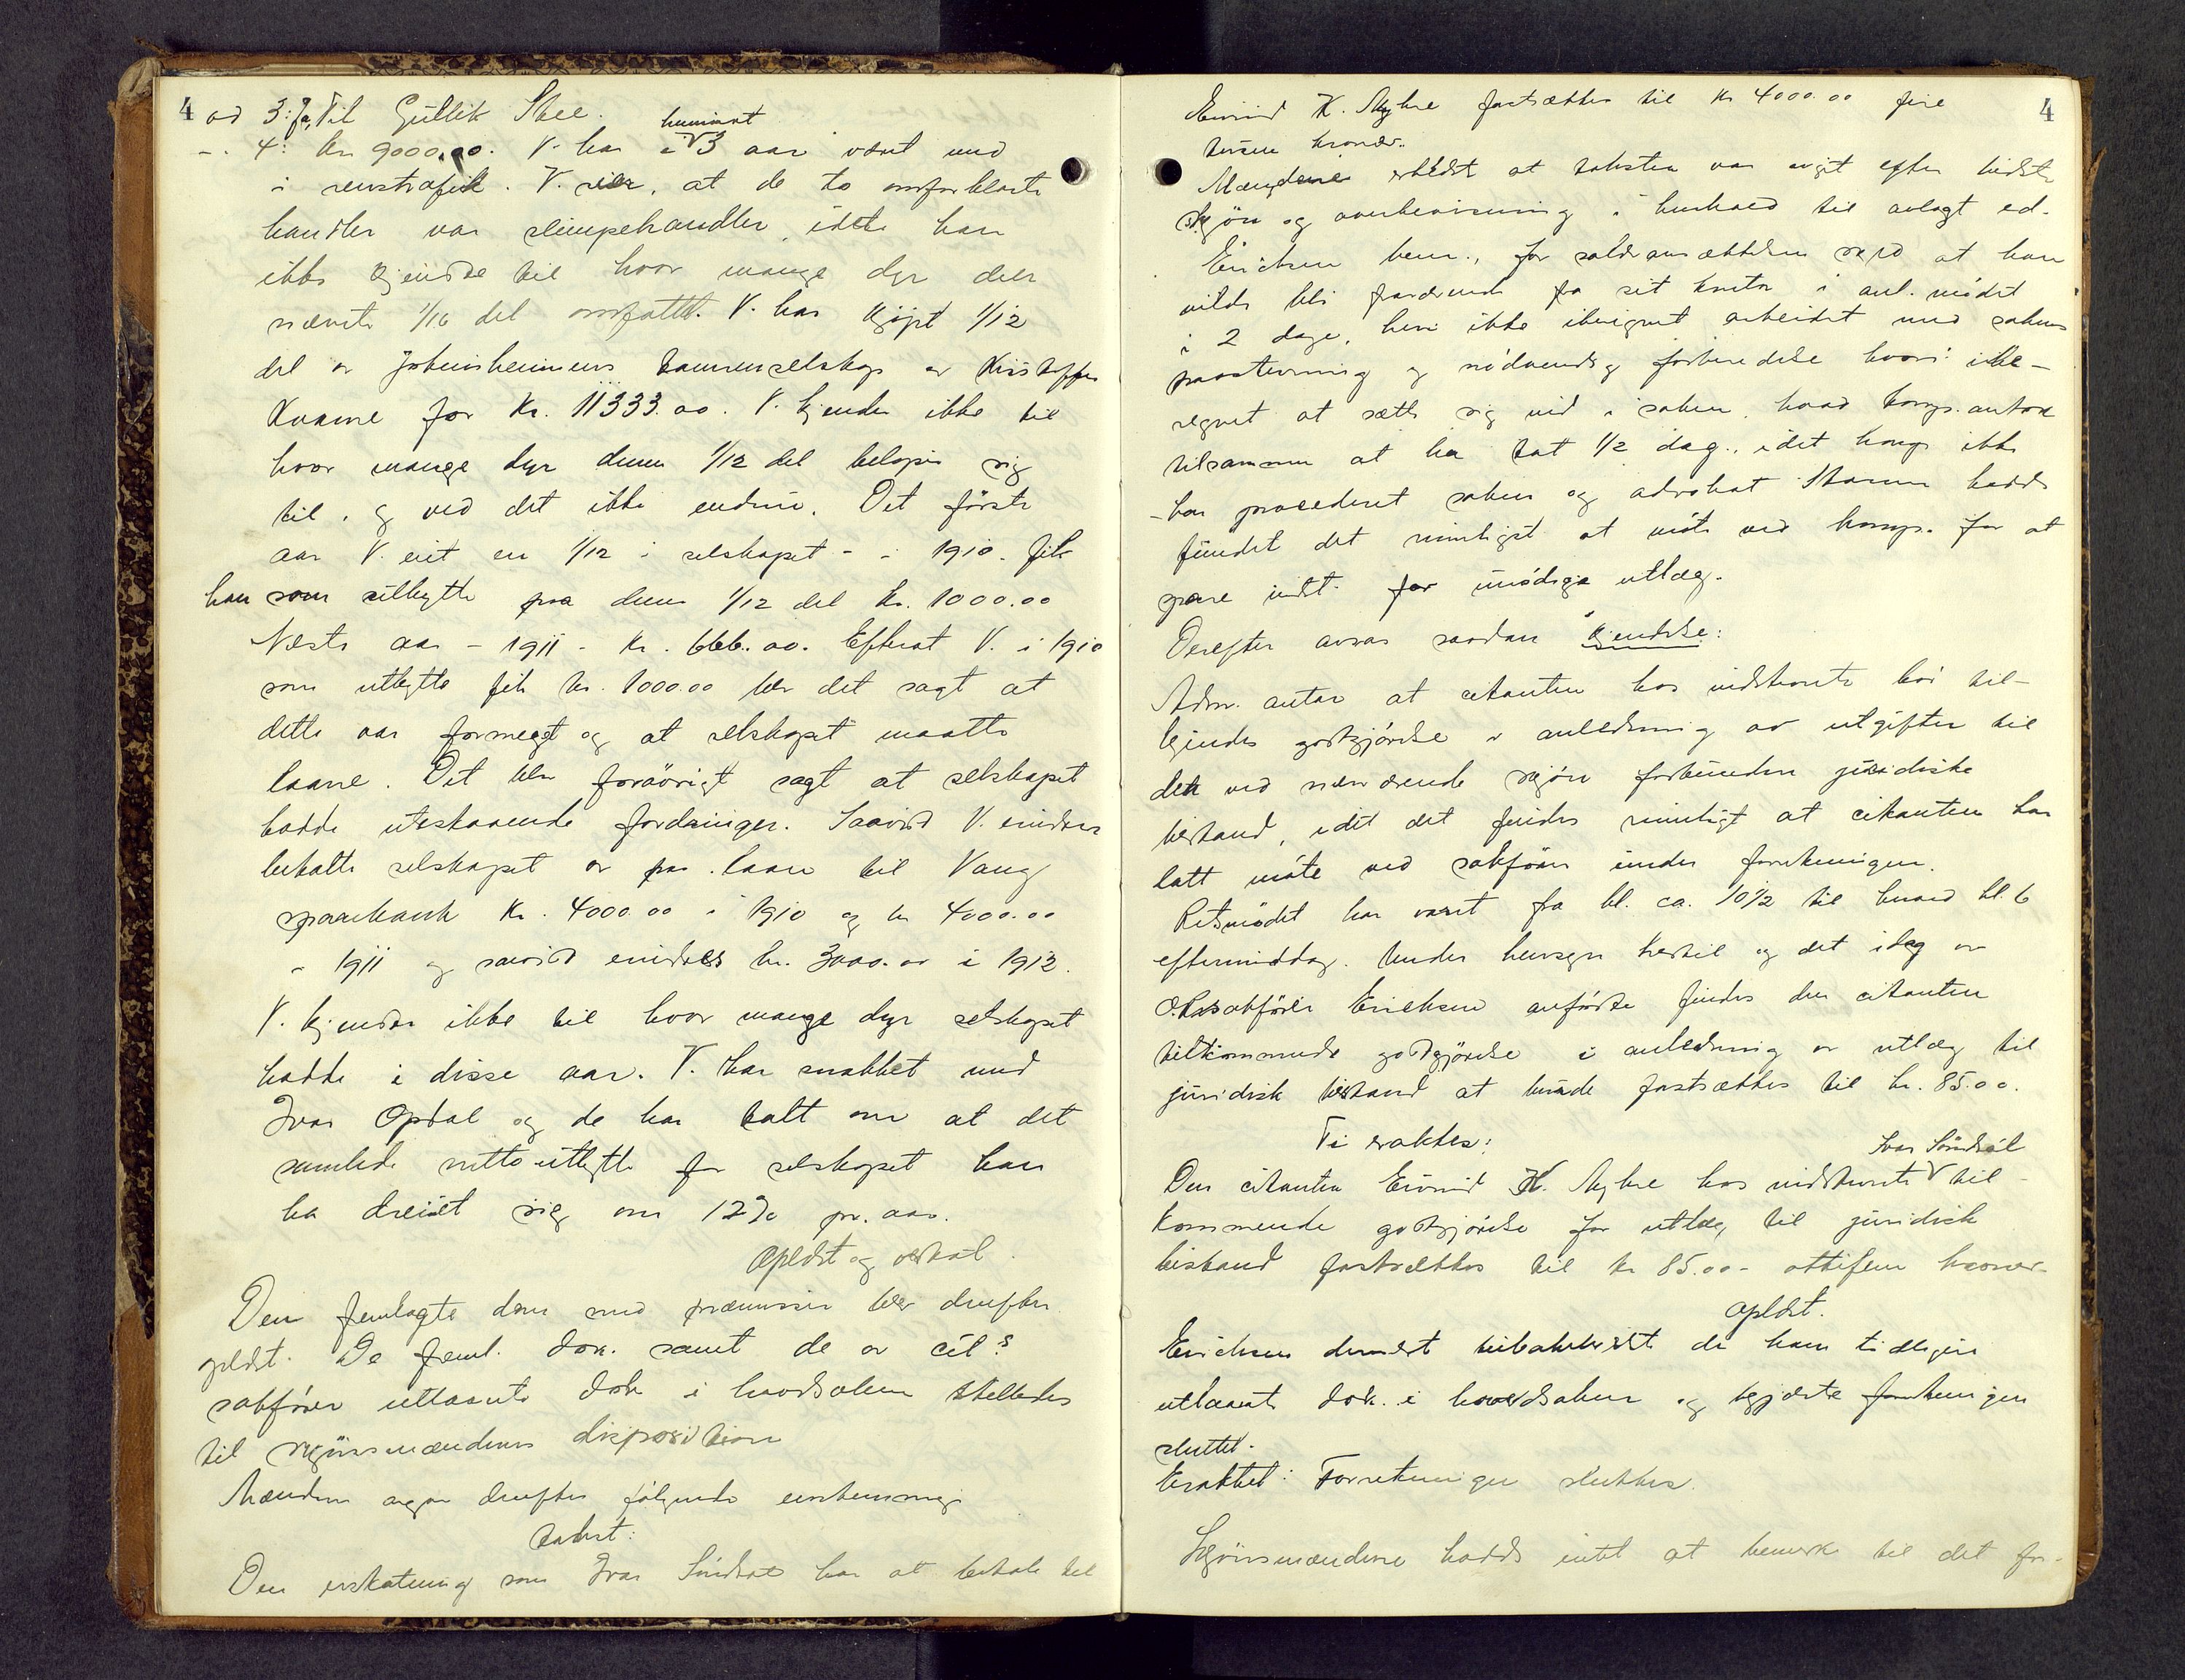 4 ad 3: Ja, Til Gullik Skee.
-. 4: Kr 9000.00. V. har i hvimat 3 aar været med
i renstrafik. V. sier, at de to omforklarte
handler var slumpehandler, idet han
ikke kjendte til hvor mange dyr den
nævnte 1/16 del omfattet. V. har kjöpt 1/12
del av Jotunheimens tamrenselskap av Kristoffer
Kvame for Kr. 11333.00. V. kjender ikke til
hvor mange dyr denne 1/12 del beløper sig
til, og ved det ikke endnu. Det förste
aar V. eiet en 1/12 i selskapet - i 1910 - fik
han som utbytte paa denne 1/12 del kr. 1000.00
Næste aar - 1911 - kr. 666.00. Efterat V. i 1910
som utbytte fik kr. 1000.00 blev det sagt at
dette var formeget og at selskapet maatte
laane. Det blev forövrigt sagt at selskapet
hadde utestaaende fordringer. Saavidt V. erindrer
betalte selskapet av paa laan til Vang
sparebank Kr. 4000.00 i 1910 og kr 4000.00
i 1911 og saavidt erindres kr. 3000.00 i 1912.
V. kjender ikke til hvor mange dyr selskapet
hadde i disse aar. V. har snakket med
Ivar Opdal og de har talt om at det
samlede netto utbytte for selskapet kan
ha dreiet sig om 12% pr. aar.
Oplæst og vedtat.
Den fremlagte dom med præmisser blev derefter
oplæst. De freml. dok. samt de av cit.s
sakfører utlaante dok i hovedsaken stilledes
til skjönsmændenes disposition
Mændene avgav derefter følgende enstemmig
takst:
Den erstatning som Ivar Sündrol har at betale til
4
Eivind K. Myhre fastsættes til kr 4000.00 fire
tusen kroner.
Mændene erklærte at taksten var avgit efter bedste
skjön og overbevisning i henhold til avlagt ed.
Erichsen bem., for saldoansættelsen ved at han
vilde bli fraværende fra sit kontor i anl. mödet
i 2 dage, heri ikke iberegnet arbeidet med sakens
paastevning og nödvendig forberedelse hvori ibe-
regnet at sætte sig ind i saken, hvad komp. antok
tilsammen at ha tat 1/2 dag., idet komp. ikke
har procederet saken og advokat Staum hadde
fundet det rimeligst at möte ved komp. for at
spare indst. for unödige utlæg.
Derefter avsas saadan kjendelse:
Adm. antar at citanten hos indstevnte bör til-
kjendes godtgjörelse i anledning av utgifter til
den ved nærværende skjön forbundne juridiske
bistand, idet det findes rimeligt at citanten har
latt möte ved sakförer under forretningen.
Retsmödet har varet fra kl. ca. 10 1/2 til henved kl. 6
eftermiddag. Under hensyn hertil og det idag av
O.R.sakförer Erichsen anförte findes den citanten
tilkommende godtgjörelse i anledning av utlæg til
juridisk bistand at burde fastsættes til kr. 85.00.
Ti eragtes:
Den citanten Eivind K. Myhre hos indstevnte Ivar Sündröl til-
kommende godtgjörelse for utlæg til juridisk
bistand fastsættes til kr 85.00 - ottifem kroner-
Oplæst.
Erichsen dernæst tilbakelevert de ham tidligere
utlaante dok. i hovedsaken og begjærte forretningen
sluttet.
Eragtet: Forretningen sluttes.
Skjönsmændene hadde intet at bemerke til det for-